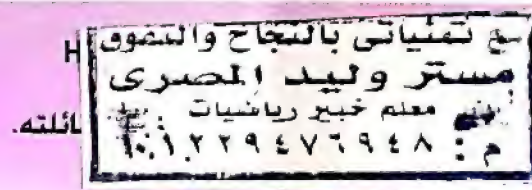 مع تمنياتى بالنجاح والتفوق
H
مستر وليد المصرى
معلم خبير رياضيات
ائلته.
م : ٠١٠٢٢٩٤٧٦٩٤٨